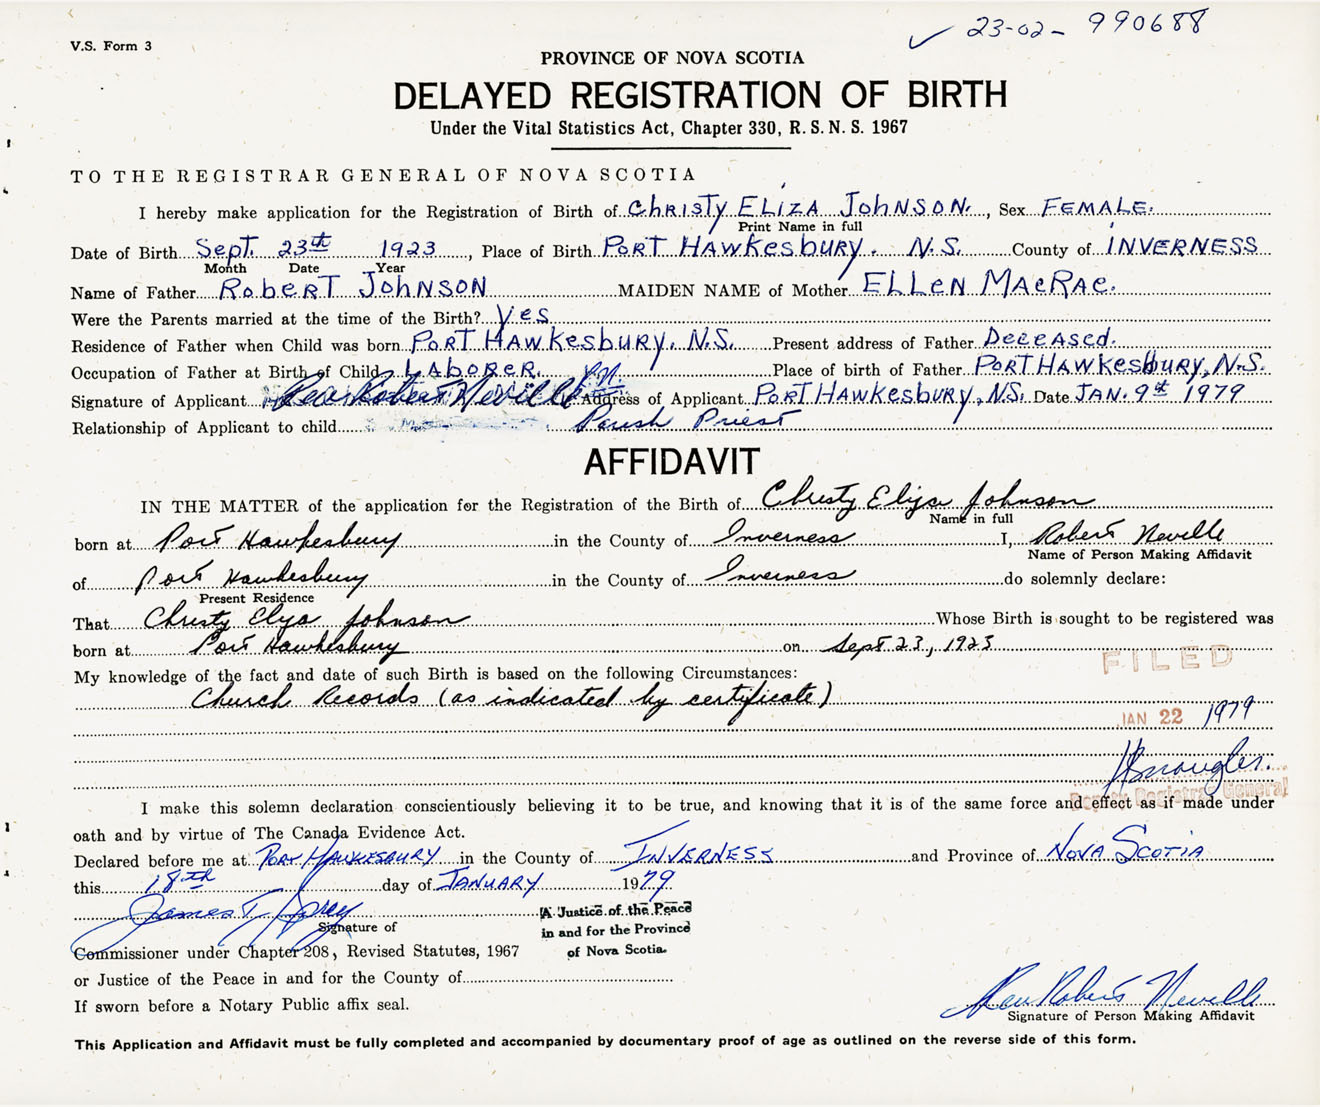 23-02- 990688
V.S. Form 3
PROVINCE OF NOVA SCOTIA
DELAYED REGISTRATION OF BIRTH
Under the Vital Statistics Act, Chapter 330, R. S. N. S. 1967
TO THE REGISTRAR GENERAL OF NOVA SCOTIA
I hereby make application for the Registration of Birth of Christy Eliza Johnson. , Sex Female.
Print Name in full
Date of Birth Sept. 23th 1923 , Place of Birth Port Hawkesbury. N.S. County of Inverness
Month Date Year
Name of Father Robert Johnson MAIDEN NAME of Mother Ellen MacRae.
Were the Parents married at the time of the Birth? Yes
Residence of Father when Child was born Port Hawkesbury, N.S. Present address of Father Deceased.
Occupation of Father at Birth of Child Laborer. Place of birth of Father Port Hawkesbury, N.S.
Signature of Applicant Rev Robert Neville Address of Applicant Port Hawkesbury, N.S. Date Jan. 9th 1979
Relationship of Applicant to child Parish Priest
AFFIDAVIT
IN THE MATTER of the application for the Registration of the Birth of Christy Eliza Johnson
Name in full
born at Port Hawkesbury in the County of Inverness I, Robert Neville
Name of Person Making Affidavit
of Port Hawkesbury in the County of Inverness do solemnly declare:
Present Residence
That Christy Eliza Johnson Whose Birth is sought to be registered was
born at Port Hawkesbury on Sept 23, 1923
FILED
My knowledge of the fact and date of such Birth is based on the following Circumstances:
Church Records (as indicated by certificate)
JAN 22 1979
Deputy Registrar General
I make this solemn declaration conscientiously believing it to be true, and knowing that it is of the same force and effect as if made under
oath and by virtue of The Canada Evidence Act.
Declared before me at Port Hawkesbury in the County of Inverness and Province of Nova Scotia
this 18th day of January 1979
James T.
A Justice of the Peace
in and for the Province
of Nova Scotia.
Signature of
Commissioner under Chapter 208, Revised Statutes, 1967
or Justice of the Peace in and for the County of
If sworn before a Notary Public affix seal.
Rev Robert Neville
Signature of Person Making Affidavit
This Application and Affidavit must be fully completed and accompanied by documentary proof of age as outlined on the reverse side of this form.